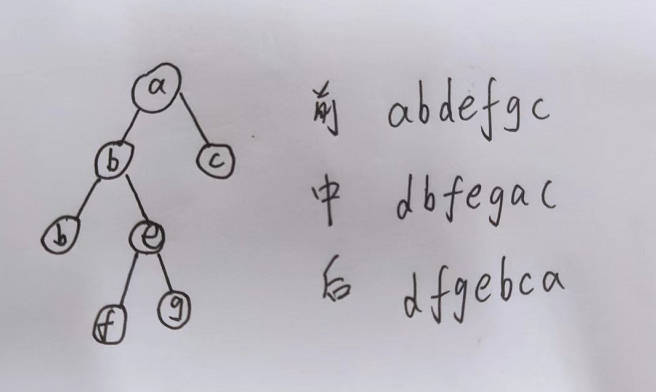 a
b c
b e
f g
前 abdefgc
中 dbfegac
后 dfgebca